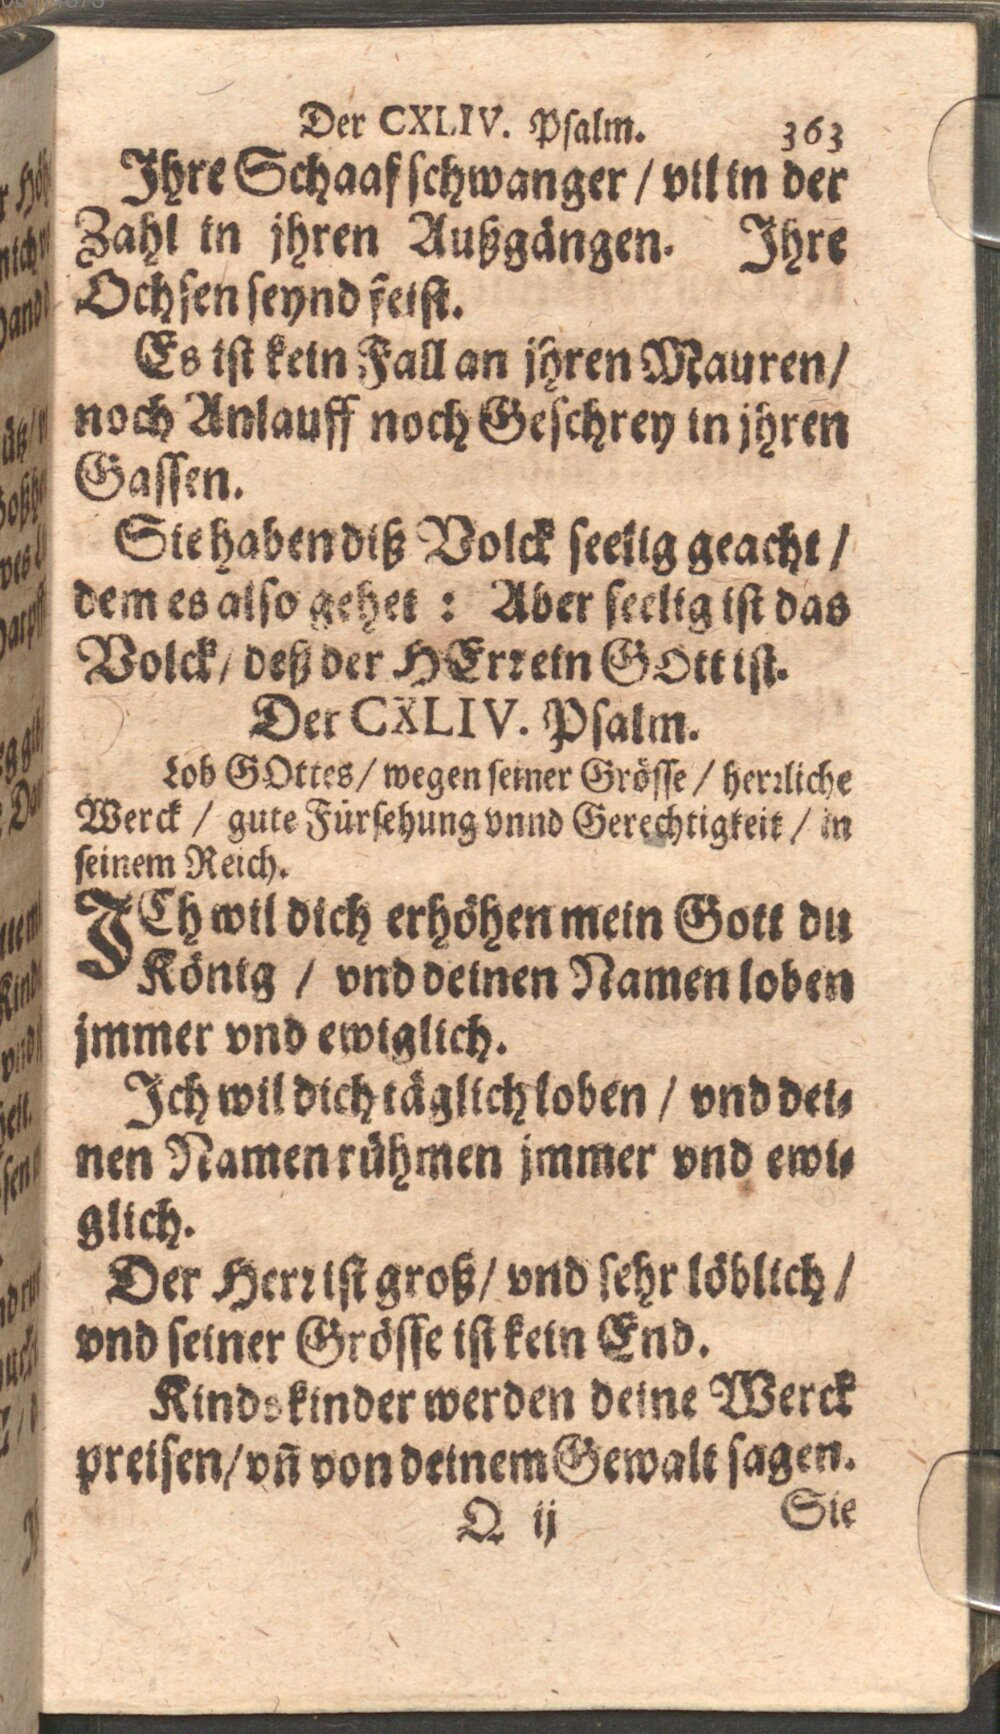 Der CXLIV. Psalm. 363
Ihre Schaaf schwanger / vil in der
Zahl in jhren Außgängen. Ihre
Ochsen seynd feist.
Es ist kein Fall an jhren Mauren /
noch Anlauff noch Geschrey in jhren
Gassen.
Sie haben diß Volck seelig geacht /
dem es also gehet : Aber seelig ist das
Volck / deß der HErr ein GOtt ist.
Der CXLIV. Psalm.
Lob GOttes / wegen seiner Grösse / herrliche
Werck / gute Fürsehung vnnd Gerechtigkeit / in
seinem Reich.
ICh wil dich erhöhen mein Gott du
König / vnd deinen Namen loben
jmmer vnd ewiglich.
Ich wil dich täglich loben / vnd dei-
nen Namen rühmen jmmer vnd ewi-
glich.
Der Herr ist groß / vnd sehr löblich /
vnd seiner Grösse ist kein End.
Kindskinder werden deine Werck
preisen / vñ von deinem Gewalt sagen.
Q ij Sie